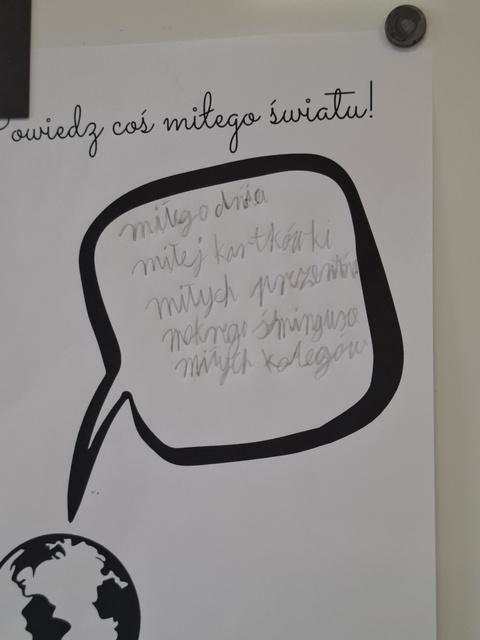 Powiedz coś miłego światu!
miłego dnia
miłej kartkówki
miłych prezentów
mokrego śmingusa
miłych kolegów